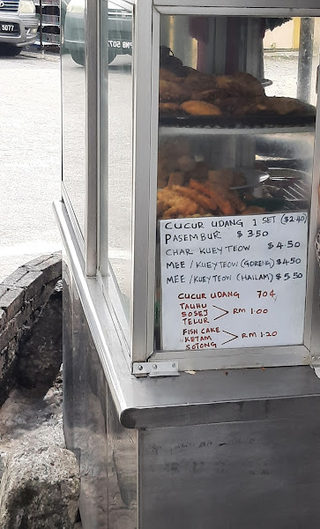 5077
CUCUR UDANG 1 SET ($2.40)
PASEMBUR $3.50
CHAR KUEYTEOW $4.50
MEE / KUEYTEOW (GORENG) $4.50
MEE / KUEYTEOW (HAILAM) $5.50
CUCUR UDANG 70¢
TAUHU
SOSEJ > RM 1.00
TELUR
FISH CAKE
KETAM > RM 1.20
SOTONG